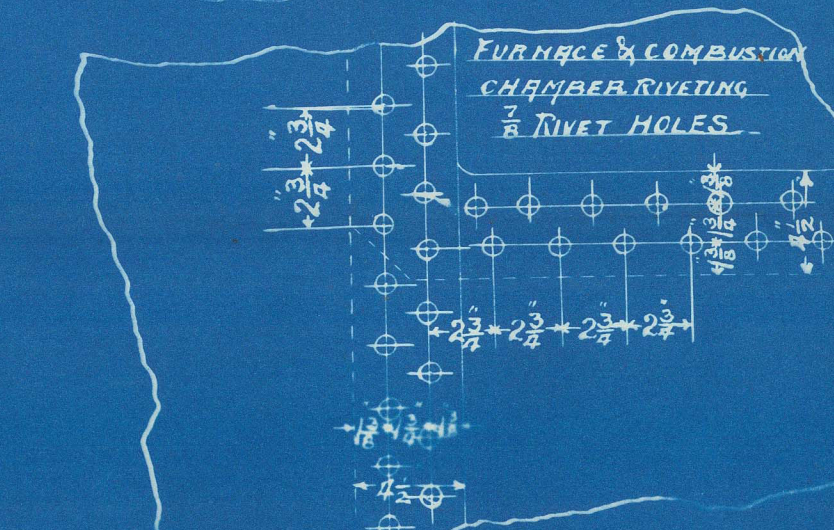 FURNACE & COMBUSTION
CHAMBER RIVETING
7/8 RIVET HOLES
2 3/4"
2 3/4"
1 3/8" 1 3/4" 1 3/8"
4 1/2"
2 3/4" 2 3/4" 2 3/4" 2 3/4"
1 3/8 1 3/4 1 3/8
4 1/2